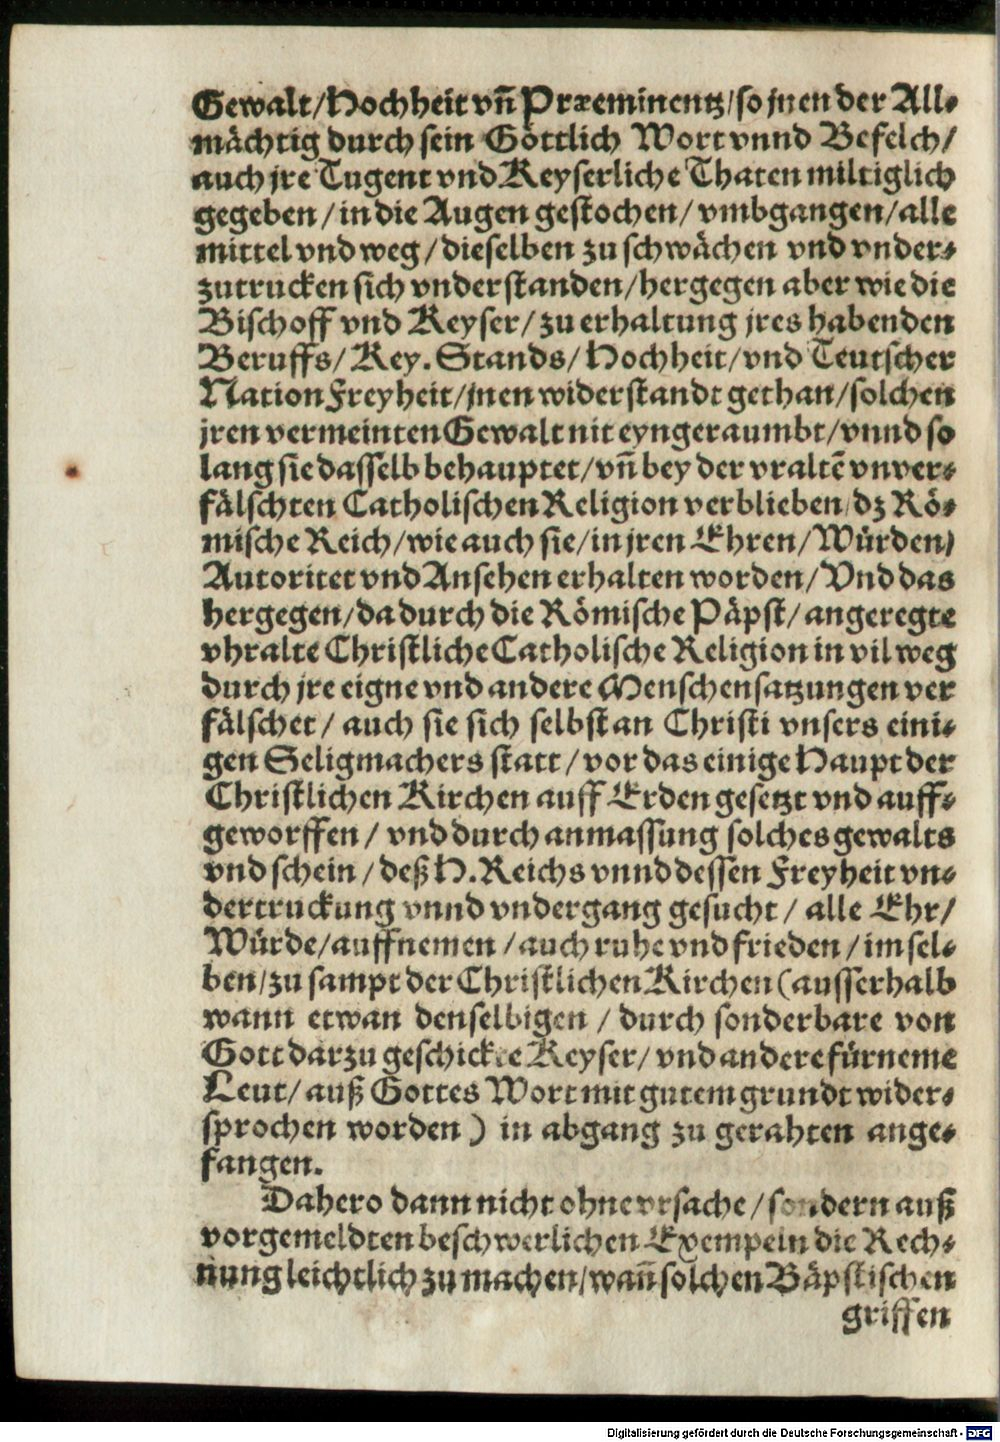 Gewalt/Hochheit vñ Præeminentz/so jnen der All-
mächtig durch sein Göttlich Wort vnnd Befelch/
auch jre Tugent vnd Keyserliche Thaten miltiglich
gegeben/in die Augen gestochen/vmbgangen/alle
mittel vnd weg/dieselben zu schwächen vnd vnder-
zutrucken sich vnderstanden/hergegen aber wie die
Bischoff vnd Keyser/zu erhaltung jres habenden
Beruffs/Key. Stands/Hochheit/vnd Teutscher
Nation Freyheit/jnen widerstandt gethan/solchen
jren vermeinten Gewalt nit eyngeraumbt/vnnd so
lang sie dasselb behauptet/vñ bey der vraltẽ vnver-
fälschten Catholischen Religion verblieben/dz Rö-
mische Reich/wie auch sie/in jren Ehren/Würden/
Autoritet vnd Ansehen erhalten worden/Vnd das
hergegen/da durch die Römische Päpst/angeregte
vhralte Christliche Catholische Religion in vil weg
durch jre eigne vnd andere Menschensatzungen ver
fälschet/auch sie sich selbst an Christi vnsers eini-
gen Seligmachers statt/vor das einige Haupt der
Christlichen Kirchen auff Erden gesetzt vnd auff-
geworffen/vnd durch anmassung solches gewalts
vnd schein/deß H. Reichs vnnd dessen Freyheit vn-
dertruckung vnnd vndergang gesucht/alle Ehr/
Würde/auffnemen/auch ruhe vnd frieden/im sel-
ben/zu sampt der Christlichen Kirchen (ausserhalb
wann etwan denselbigen/durch sonderbare von
Gott darzu geschickte Keyser/vnd andere fürneme
Leut/auß Gottes Wort mit gutem grundt wider-
sprochen worden) in abgang zu gerahten ange-
fangen.
Dahero dann nicht ohne vrsache/sondern auß
vorgemeldten beschwerlichen Exempeln die Rech-
nung leichtlich zu machen/wañ solchen Bäpstischen
griffen
Digitalisierung gefördert durch die Deutsche Forschungsgemeinschaft - DFG